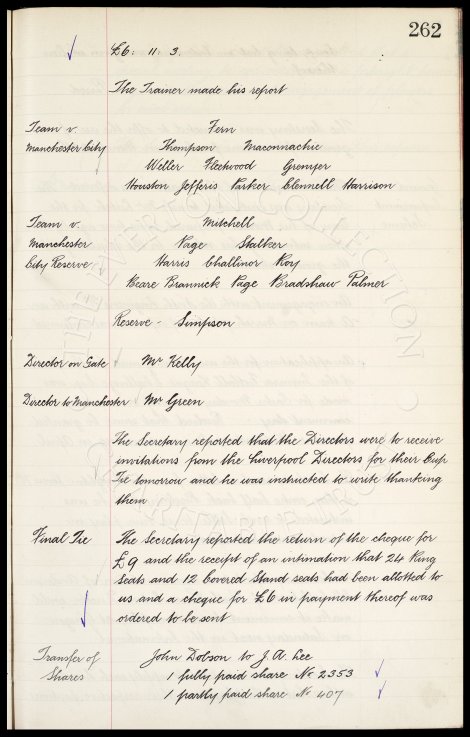 262
£6: 11: 3.
The Trainer made his report
Team v. Fern
Manchester City Thompson Maconnachie
Weller Fleetwood Grenyer
Houston Jefferis Parker Clennell Harrison
Team v. Mitchell
Manchester Page Stalker
City Reserve Harris Challinor Roy
Beare Brannick Page Bradshaw Palmer
Reserve - Simpson
Director on Gate Mr Kelly
Director to Manchester Mr Green
The Secretary reported that the Directors were to receive
invitations from the Liverpool Directors for their Cup
Tie tomorrow and he was instructed to write thanking
them
Final Tie The Secretary reported the return of the cheque for
£9 and the receipt of an intimation that 24 Ring
Seats and 12 Covered Stand seats had been allotted to
us and a cheque for £6 in payment thereof was
ordered to be sent
Transfer of John Dobson to J. A. Lee
Shares 1 fully paid share No 2353
1 partly paid share No 407